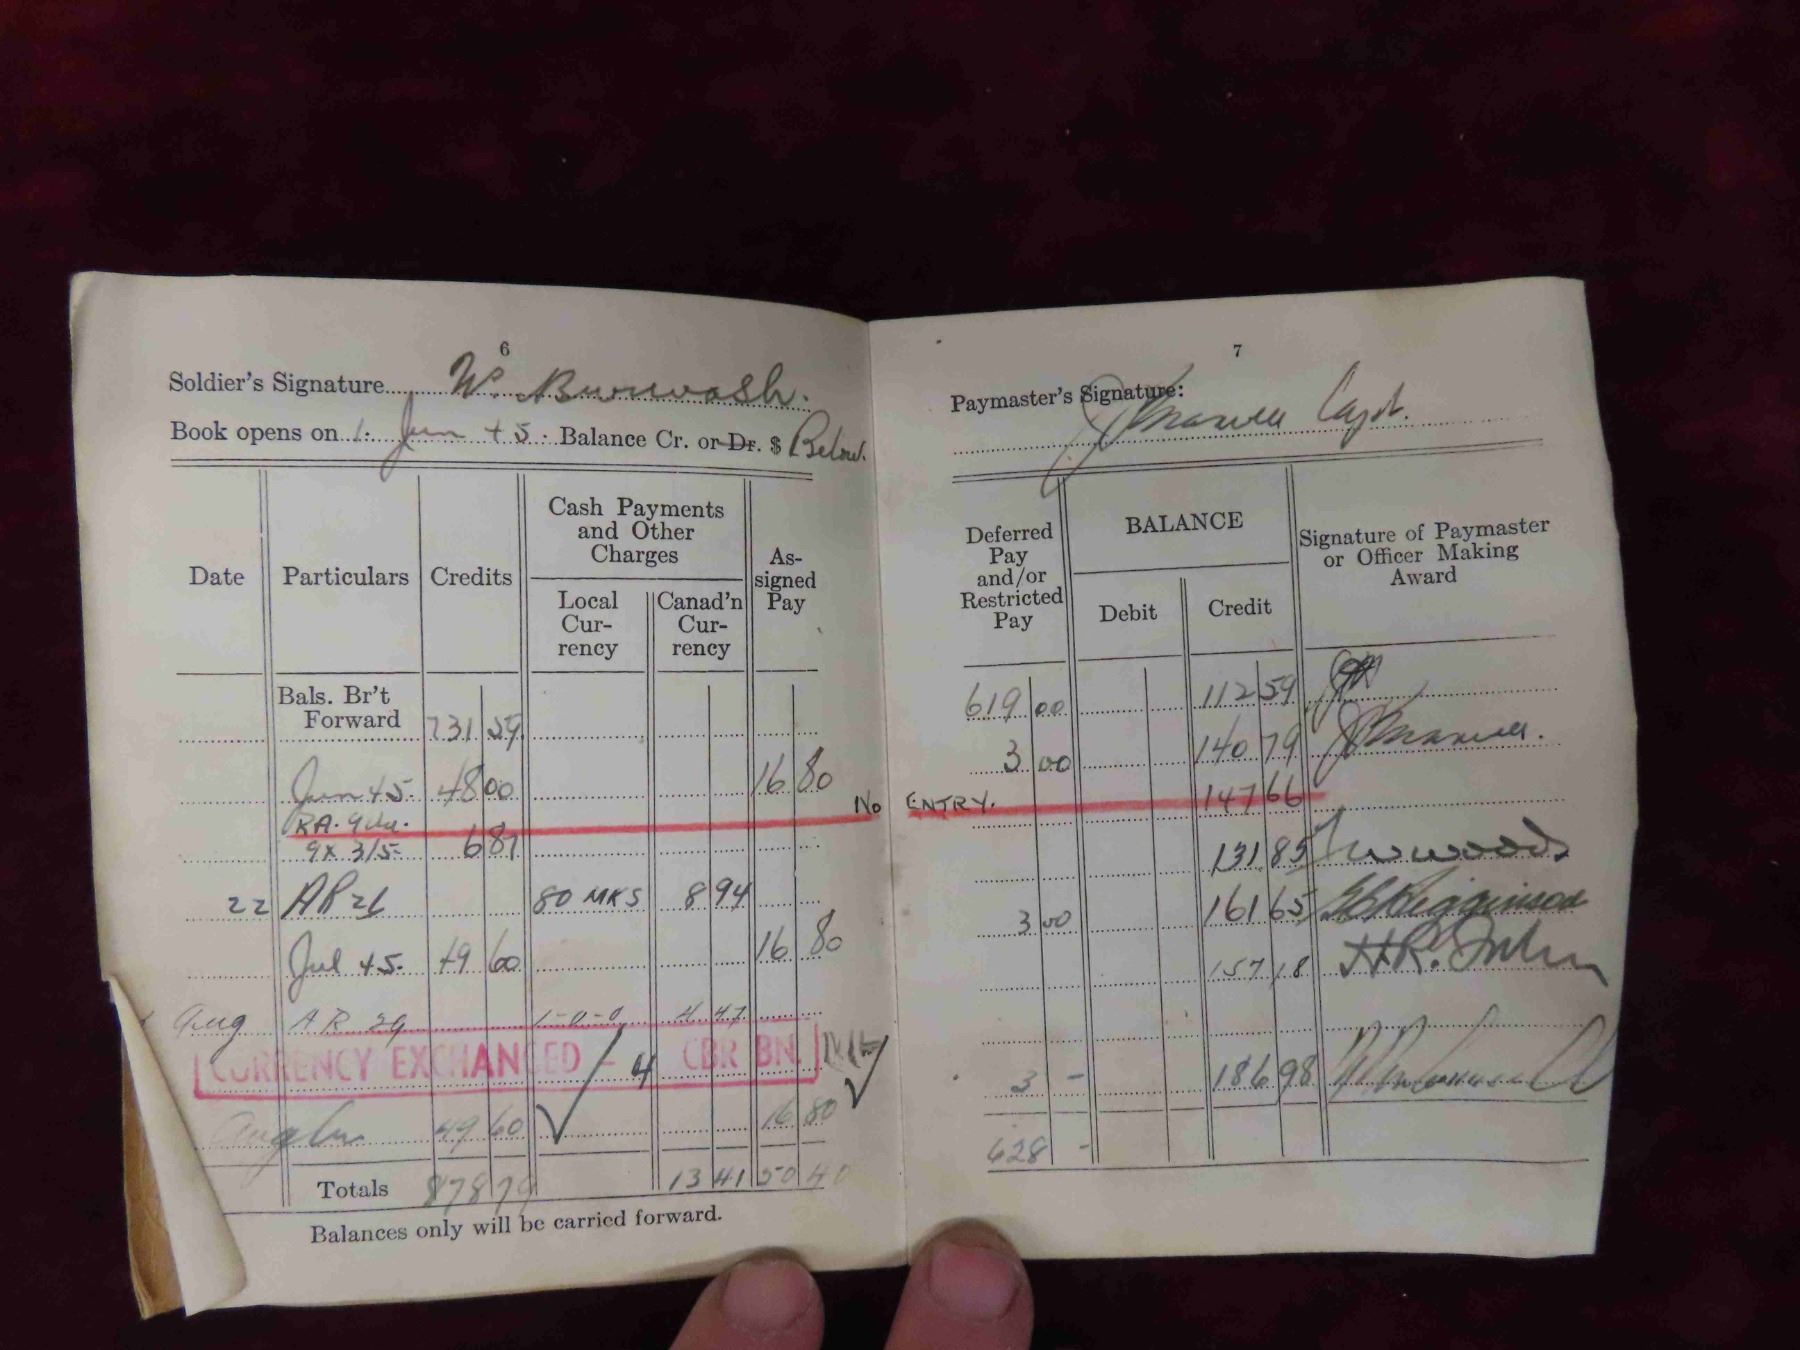 6
Soldier's Signature W. Burwash.
Book opens on 1. Jun 45. Balance Cr. or Dr. $ Below.
Date Particulars Credits Cash Payments and Other Charges Assigned Pay
Local Currency Canad'n Currency
Bals. Br't Forward 731 59
Jun 45. 48 00 16 80
RA. No
9x 3/5 6 87
22 AR 21 80 MKS 8 94
Jul 45. 49 60 16 80
Aug AR 29 1-0-0 4 47
CURRENCY EXCHANGED - 4 CBR BN.
Aug 49 60 16 80
Totals 878 79 13 41 50 40
Balances only will be carried forward.
7
Paymaster's Signature:
Capt.
Deferred Pay and/or Restricted Pay BALANCE Signature of Paymaster or Officer Making Award
Debit Credit
619 00 112 59
3 00 140 79
ENTRY. 147 66
131 85 Woods
3 00 161 65 Higginson
157 18 H.R.
3 - 186 98
628 -